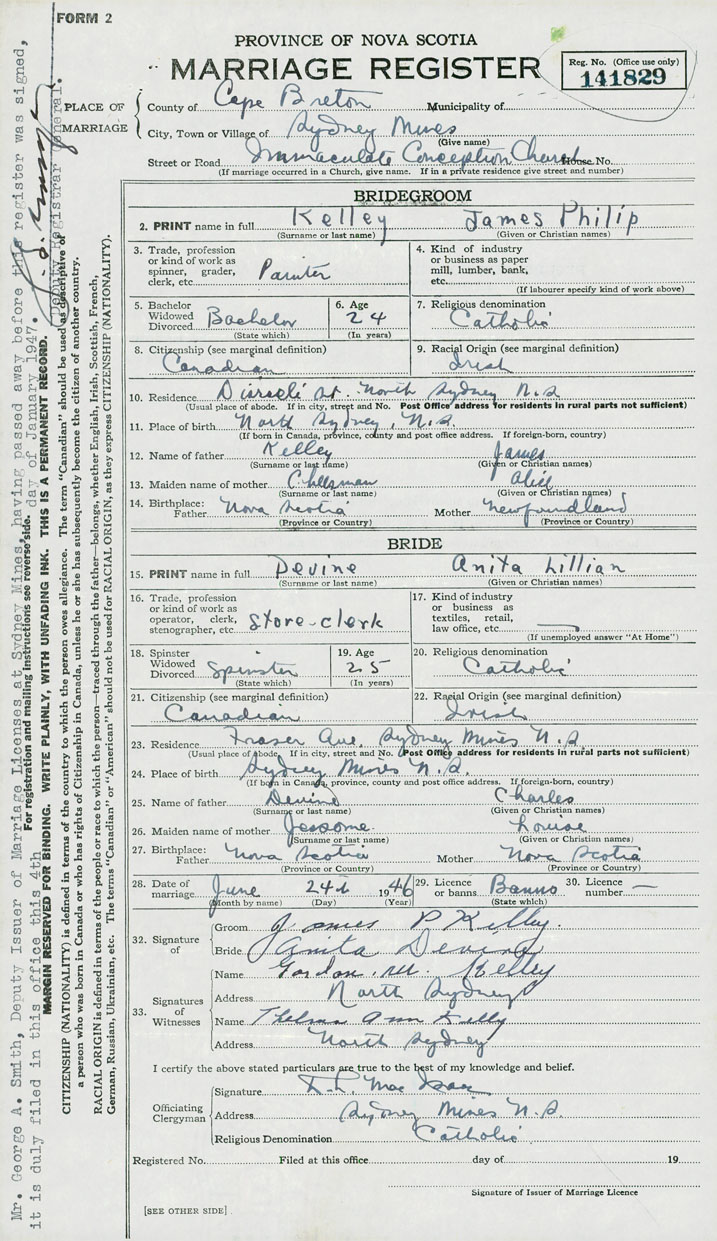 FORM 2
PROVINCE OF NOVA SCOTIA
MARRIAGE REGISTER
Reg. No. (Office use only)
141829
PLACE OF MARRIAGE
County of Cape Breton Municipality of
City, Town or Village of Sydney Mines
(Give name)
Street or Road Immaculate Conception Church House No.
(If marriage occurred in a Church, give name. If in a private residence give street and number)
BRIDEGROOM
2. PRINT name in full Kelley James Philip
(Surname or last name) (Given or Christian names)
3. Trade, profession or kind of work as spinner, grader, clerk, etc. Painter
4. Kind of industry or business as paper mill, lumber, bank, etc.
(If labourer specify kind of work above)
5. Bachelor Widowed Divorced Bachelor
(State which)
6. Age 24
(In years)
7. Religious denomination
Catholic
8. Citizenship (see marginal definition)
Canadian
9. Racial Origin (see marginal definition)
Irish
10. Residence Disraeli St. North Sydney N.S.
(Usual place of abode. If in city, street and No. Post Office address for residents in rural parts not sufficient)
11. Place of birth North Sydney, N.S.
(If born in Canada, province, county and post office address. If foreign-born, country)
12. Name of father Kelley James
(Surname or last name) (Given or Christian names)
13. Maiden name of mother Cheesman Alice
(Surname or last name) (Given or Christian names)
14. Birthplace: Father Nova Scotia Mother Newfoundland
(Province or Country) (Province or Country)
BRIDE
15. PRINT name in full Devine Anita Lillian
(Surname or last name) (Given or Christian names)
16. Trade, profession or kind of work as operator, clerk, stenographer, etc. Store-clerk
17. Kind of industry or business as textiles, retail, law office, etc.
(If unemployed answer "At Home")
18. Spinster Widowed Divorced Spinster
(State which)
19. Age 25
(In years)
20. Religious denomination
Catholic
21. Citizenship (see marginal definition)
Canadian
22. Racial Origin (see marginal definition)
Irish
23. Residence Fraser Ave. Sydney Mines N.S.
(Usual place of abode. If in city, street and No. (Post Office address for residents in rural parts not sufficient)
24. Place of birth Sydney Mines N.S.
(If born in Canada, province, county and post office address. If foreign-born, country)
25. Name of father Devine Charles
(Surname or last name) (Given or Christian names)
26. Maiden name of mother Jessome Louise
(Surname or last name) (Given or Christian names)
27. Birthplace: Father Nova Scotia Mother Nova Scotia
(Province or Country) (Province or Country)
28. Date of marriage June 24th 1946
(Month by name) (Day) (Year)
29. Licence or banns Banns
(State which)
30. Licence number —
32. Signature of
Groom James P Kelley
Bride Anita Devine
33. Signatures of Witnesses
Name Gordon M. Kelley
Address North Sydney
Name Thelma Ann Kelly
Address North Sydney
I certify the above stated particulars are true to the best of my knowledge and belief.
Officiating Clergyman
Signature Mac Isaac
Address Sydney Mines N.S.
Religious Denomination Catholic
Registered No. Filed at this office day of 19
Signature of Issuer of Marriage Licence
[SEE OTHER SIDE]
Mr. George A. Smith, Deputy Issuer of Marriage Licenses at Sydney Mines, having passed away before this register was signed,
it is duly filed in this office this 4th day of January 1947.
Deputy Registrar General.
For registration and mailing instructions see reverse side.
MARGIN RESERVED FOR BINDING. WRITE PLAINLY, WITH UNFADING INK. THIS IS A PERMANENT RECORD.
CITIZENSHIP (NATIONALITY) is defined in terms of the country to which the person owes allegiance. The term "Canadian" should be used as descriptive of
a person who was born in Canada or who has rights of Citizenship in Canada, unless he or she has subsequently become the citizen of another country.
RACIAL ORIGIN is defined in terms of the people or race to which the person—traced through the father—belongs, whether English, Irish, Scottish, French,
German, Russian, Ukrainian, etc. The terms "Canadian" or "American" should not be used for RACIAL ORIGIN, as they express CITIZENSHIP (NATIONALITY).